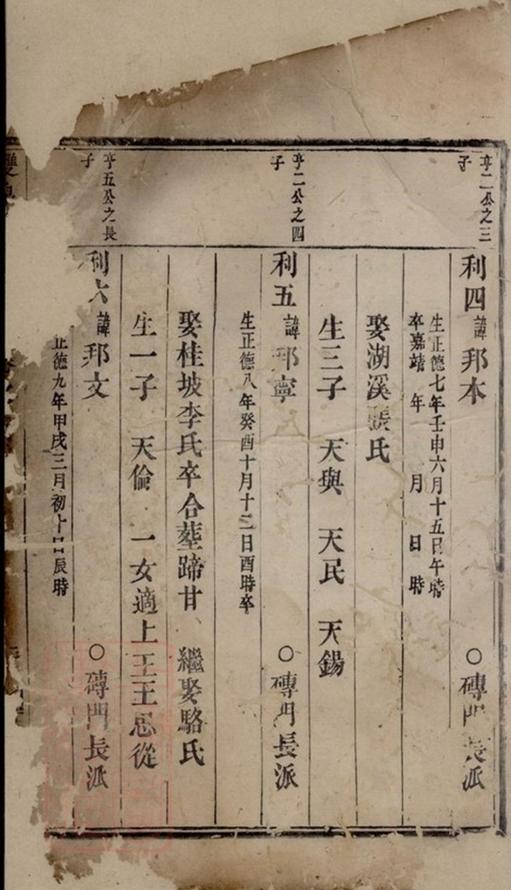 亨二公之三子
利四 諱邦本 ○磚門長派
生正德七年壬申六月十五日午時
卒嘉靖 年 月 日 時
娶湖溪張氏
生三子 天與 天民 天錫
亨二公之四子
利五 諱邦寧 ○磚門長派
生正德八年癸酉十月十二日酉時卒
娶桂坡李氏卒合塟蹄甘 繼娶駱氏
生一子 天倫 一女適上王王思從
亨五公之長子
利六 諱邦文 ○磚門長派
正德九年甲戌三月初十日辰時